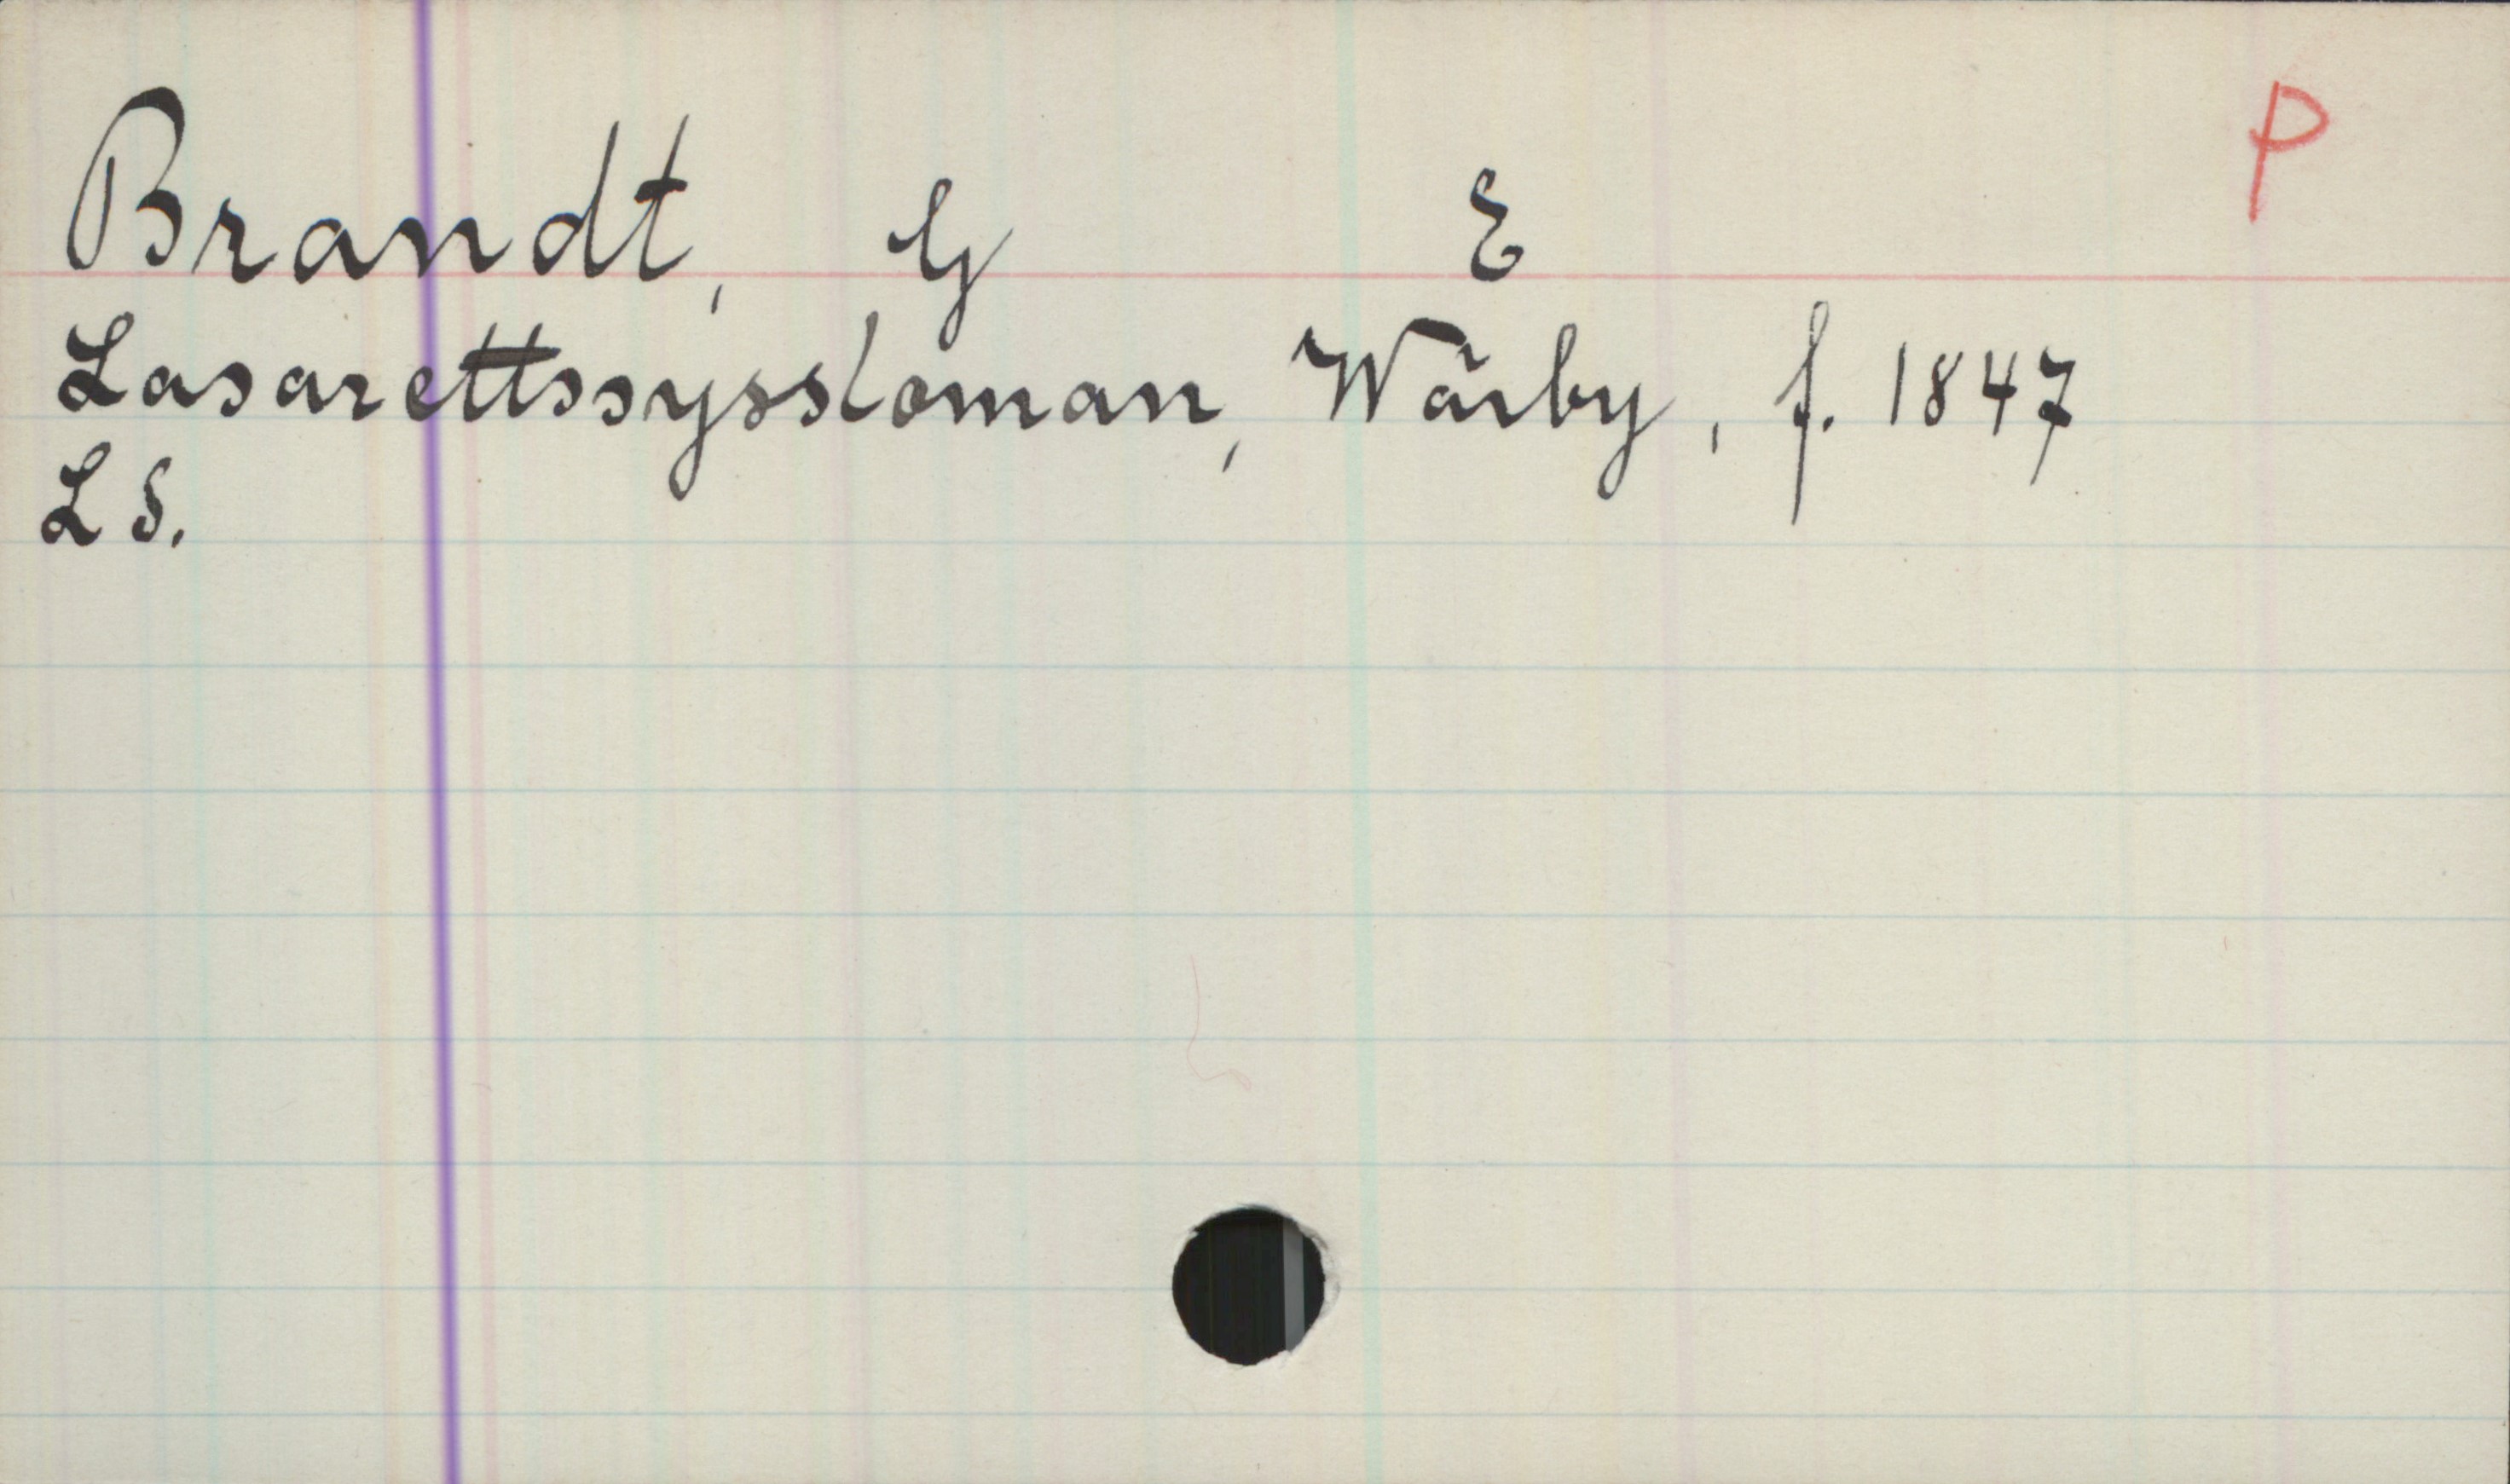 Brandt, G E P
Lasarettssyssloman, Wårby, f. 1847
L S.